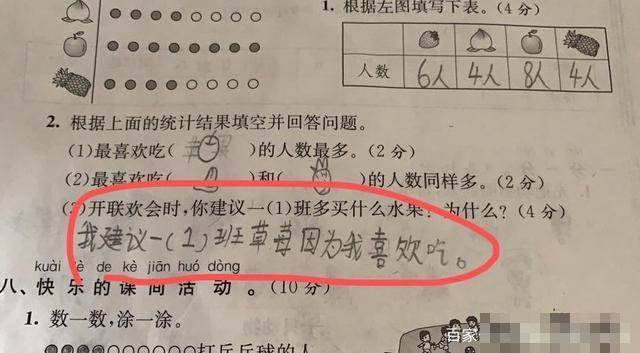 1. 根据左图填写下表。(4分)
人数 6人 4人 8人 4人
2. 根据上面的统计结果填空并回答问题。
(1)最喜欢吃( )的人数最多。(2分)
(2)最喜欢吃( )和( )的人数同样多。(2分)
(3)开联欢会时,你建议一(1)班多买什么水果?为什么?(4分)
我建议一(1)班草莓因为我喜欢吃。
kuài lè de kè jiān huó dòng
八、快乐的课间活动。(10分)
1. 数一数,涂一涂。
打乒乓球的人
百家